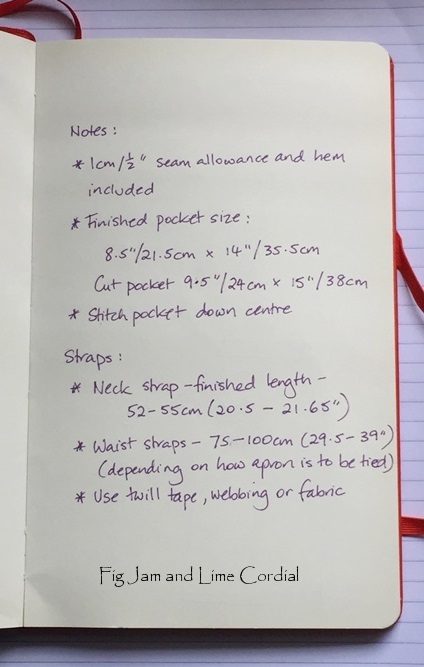 Notes:
* 1cm/½" seam allowance and hem
included
* Finished pocket size:
8.5"/21.5cm x 14"/35.5cm
Cut pocket 9.5"/24cm x 15"/38cm
* Stitch pocket down centre
Straps:
* Neck strap - finished length -
52-55cm (20.5 - 21.65")
* Waist straps - 75-100cm (29.5-39")
(depending on how apron is to be tied)
* Use twill tape, webbing or fabric
Fig Jam and Lime Cordial